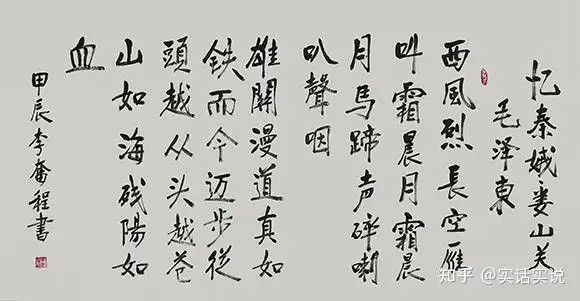 忆秦娥娄山关
毛泽东
西風烈長空雁
叫霜晨月霜晨
月馬蹄声碎喇
叭聲咽
雄關漫道真如
铁而今迈步從
頭越从头越苍
山如海残陽如
血
甲辰李奮程書
知乎 @实话实说